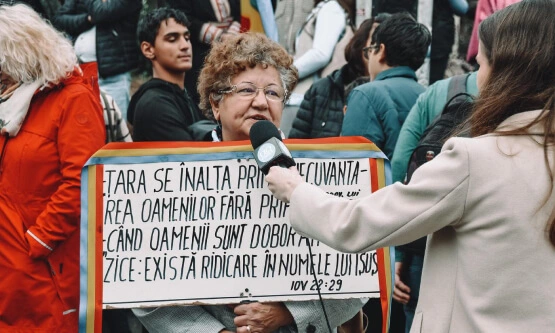 ȚARA SE ÎNALȚA
REA OAMENILOR FĂRĂ LUI
CÂND OAMENII SUNT
ZICE: EXISTĂ RIDICARE ÎN NUMELE LUI ISUS
IOV 22:29